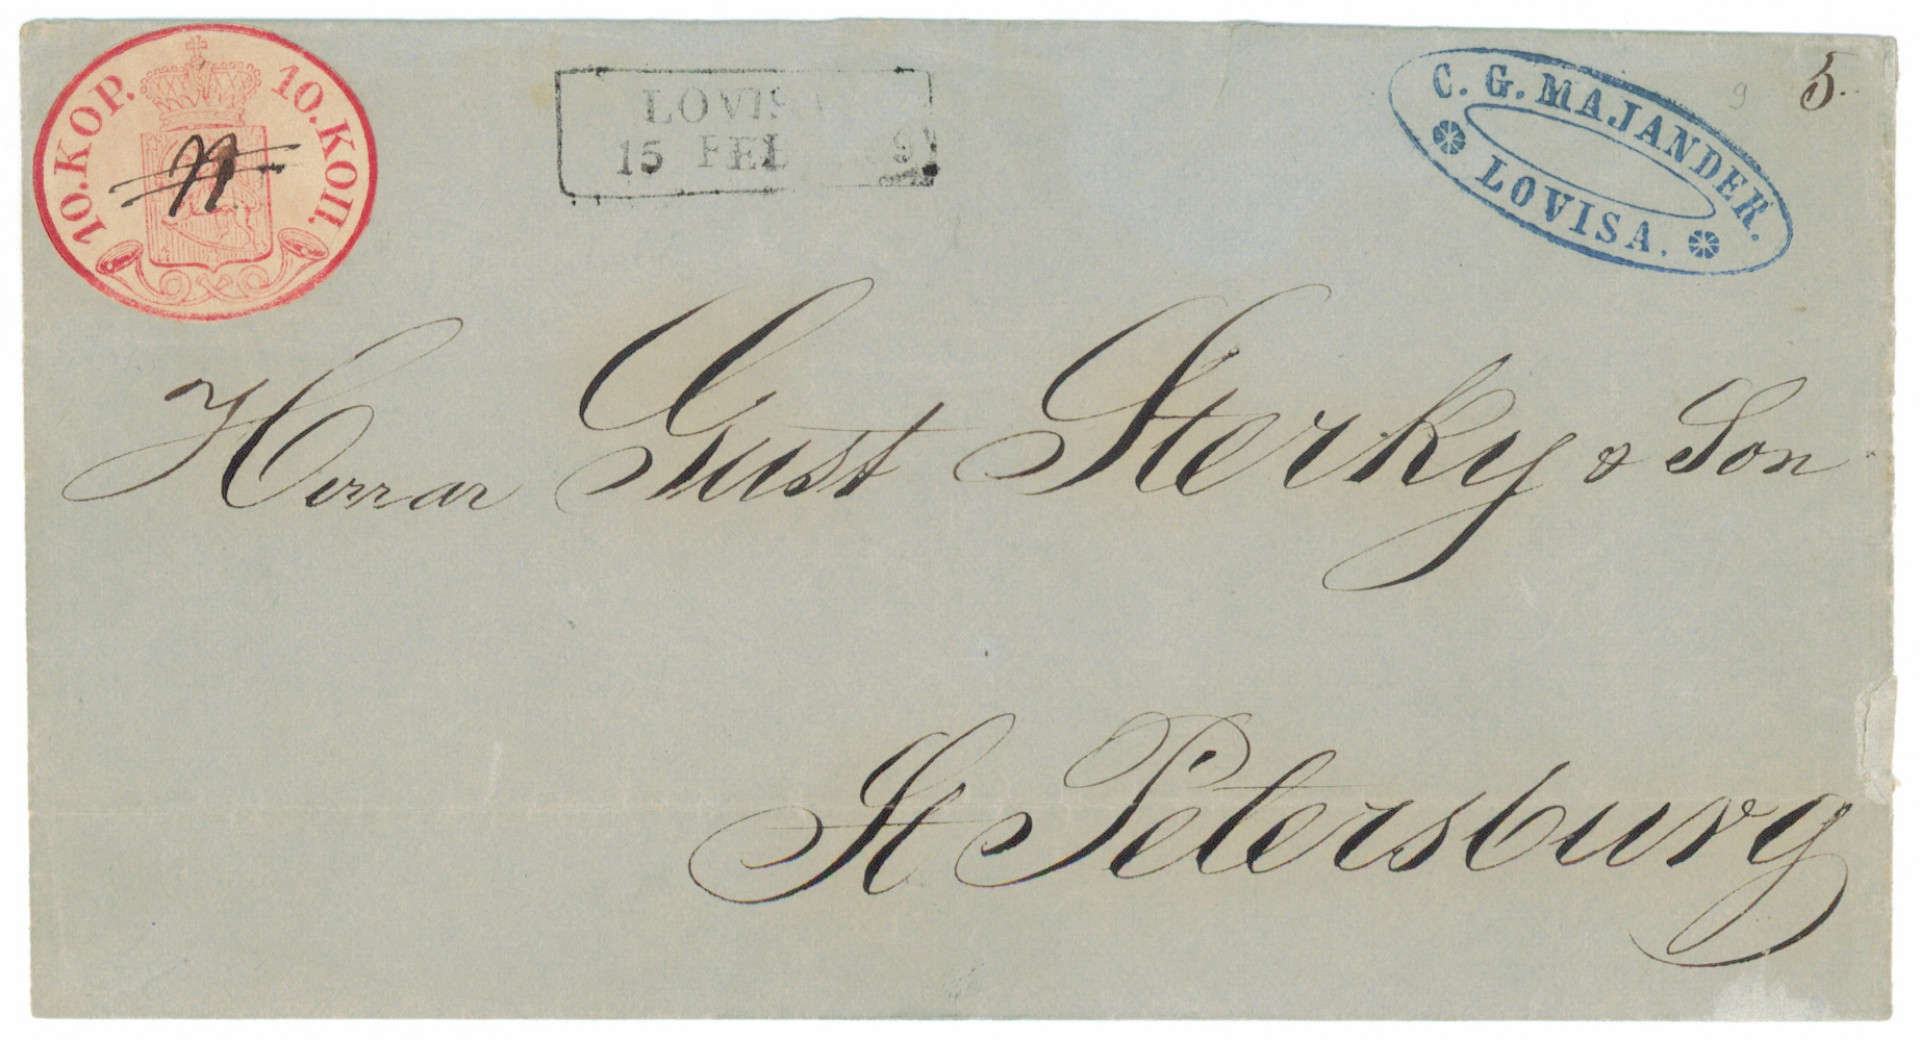 10.KOP. 10.КОП.
LOVISA
15 FEB 9
C. G. MAJANDER.
LOVISA.
9
5.
Herrar Gust Sterky & Son
St Petersburg